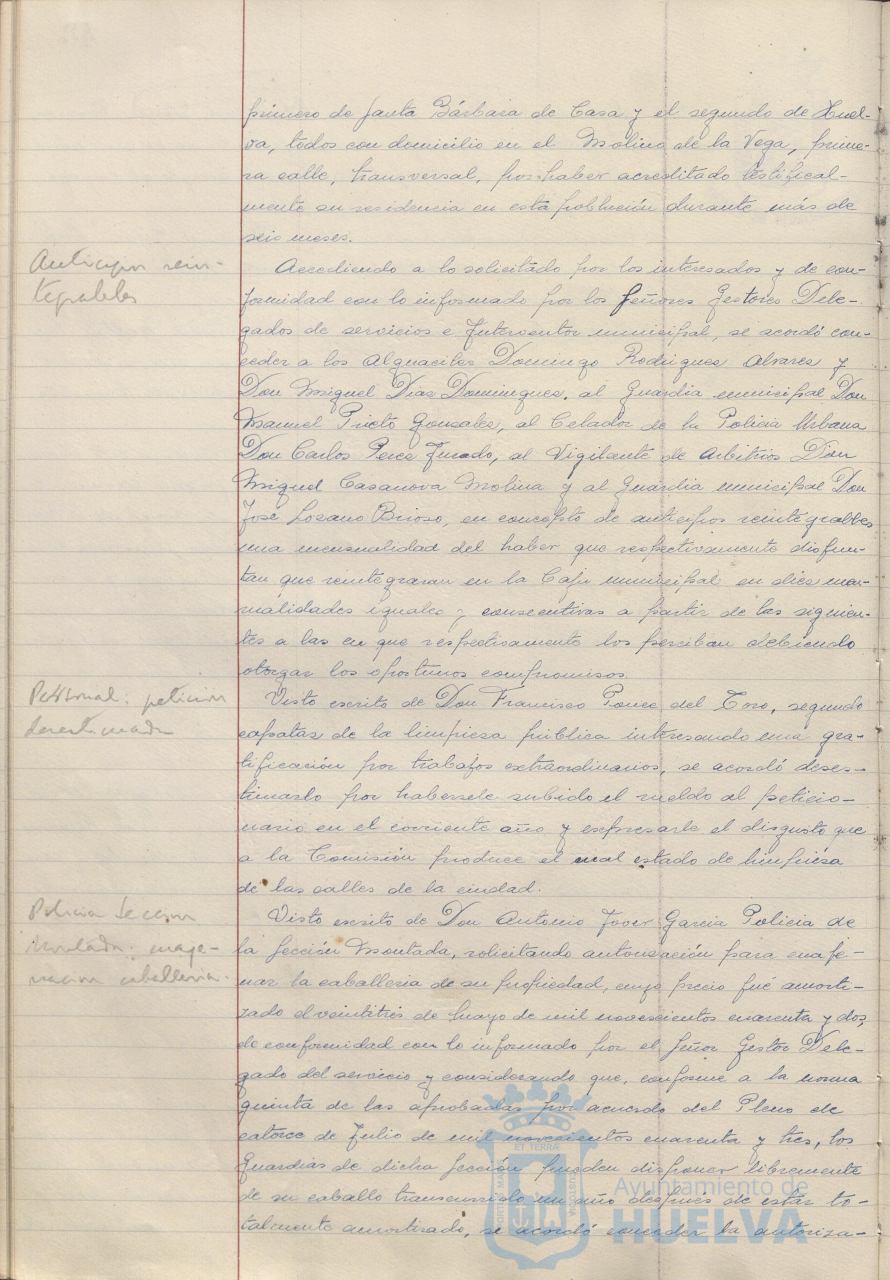 primero de Santa Bárbara de Casa y el segundo de Huel-
va, todos con domicilio en el Molino de la Vega, prime-
ra calle, transversal, por haber acreditado testifical-
mente su residencia en esta población durante más de
seis meses.
Anticipos rein-
tegrables
Accediendo a lo solicitado por los interesados y de con-
formidad con lo informado por los Señores Gestores Dele-
gados de servicios e Interventor municipal, se acordó con-
ceder a los Alguaciles Domingo Rodrigues Alvares y
Don Miguel Dias Domingues, al Guardia municipal Don
Manuel Prieto Gonsales, al Celador de la Policia Urbana
Don Carlos Peres Jurado, al Vigilante de Arbitrios Don
Miguel Casanova Molina y al Guardia municipal Don
José Lozano Brioso, en concepto de anticipos reintegrables
una mensualidad del haber que respectivamente disfru-
tan que reintegraran en la Caja municipal en dies men-
sualidades iguales y consecutivas a partir de las siguien-
tes a las en que respectivamente los perciban debiendo
otorgar los oportunos compromisos.
Personal: peticion
desestimada
Visto escrito de Don Francisco Ponce del Toro, segundo
capatas de la limpiesa pública interesando una gra-
tificación por trabajos extraordinarios, se acordó deses-
timarlo por habersele subido el sueldo al peticio-
nario en el corriente año y expresarle el disgusto que
a la Comisión produce el mal estado de limpiesa
de las calles de la ciudad.
Policia Seccion
montada: enaje-
nacion caballeria.
Visto escrito de Don Antonio Jover Garcia Policia de
la Sección Montada, solicitando autorización para enaje-
nar la caballeria de su propiedad, cuyo precio fué amorti-
zado el veintitres de Mayo de mil novescientos cuarenta y dos,
de conformidad con lo informado por el Señor Gestor Dele-
gado del servicio y considerando que, conforme a la norma
quinta de las aprobadas por acuerdo del Pleno de
catorce de Julio de mil novescientos cuarenta y tres, los
Guardias de dicha Sección pueden disponer libremente
de su caballo transcurrido un año despues de estar to-
talmente amortizado, se acordó conceder la autoriza-
Ayuntamiento de
HUELVA